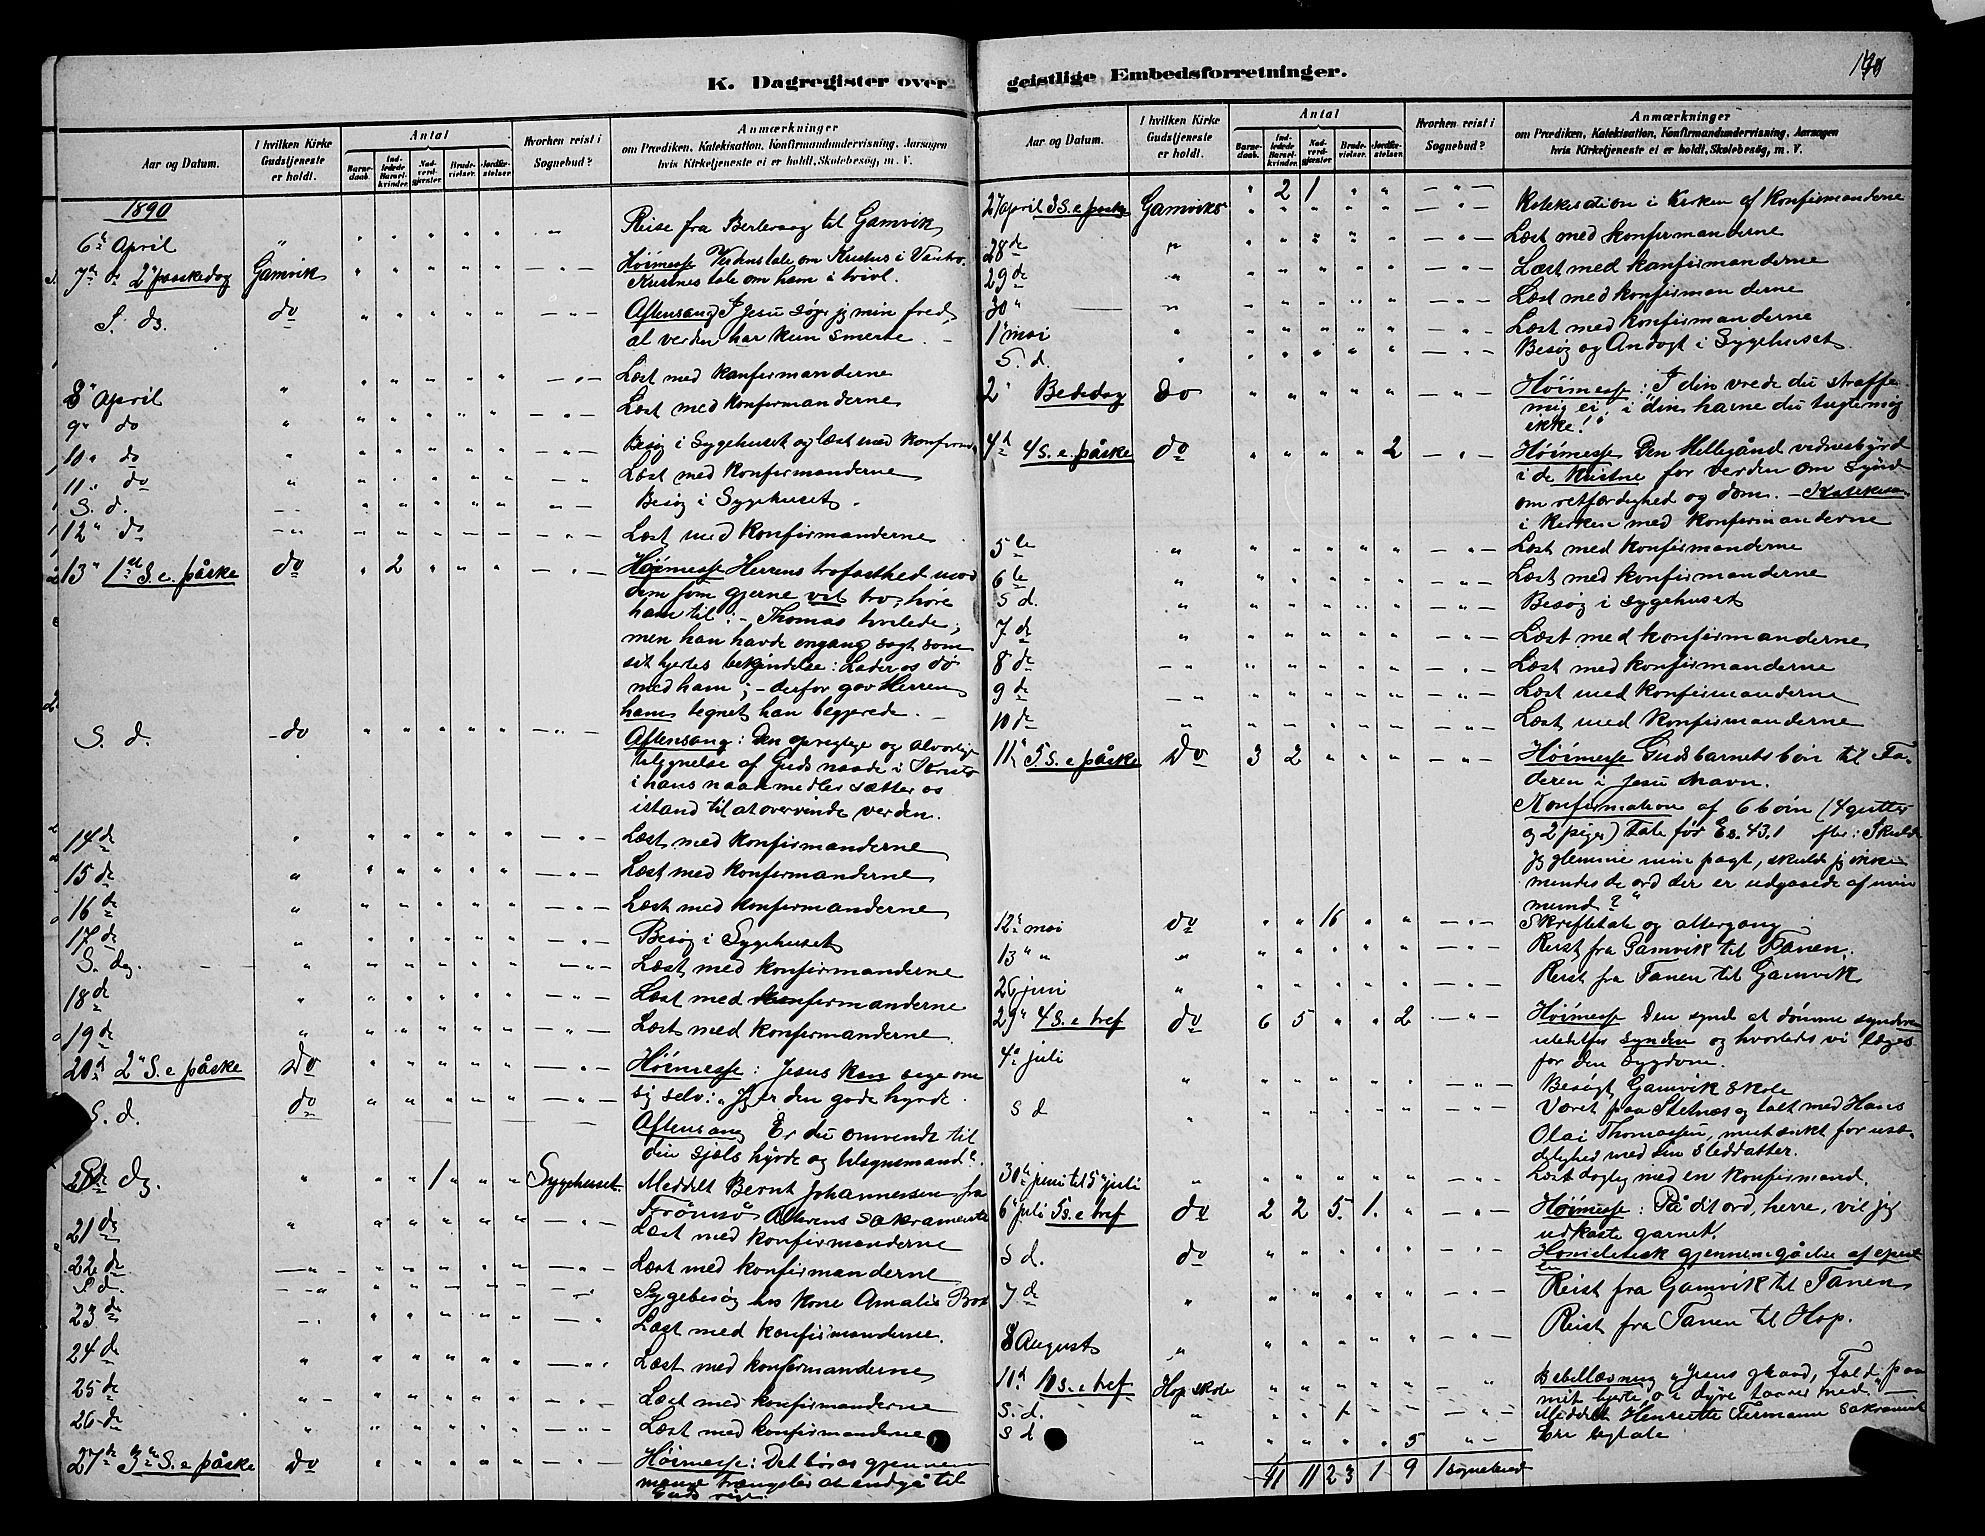 K. Dagregister over geistlige Embedsforretninger.
190
Aar og Datum.
I hvilken Kirke Gudstjeneste er holdt.
Antal
Barnedaab.
Indledede Barselkvinder.
Nadverdgjæster.
Brudevielser.
Jordfæstelser.
Hvorhen reist i Sognebud?
Anmærkninger
om Prædiken, Katekisation, Konfirmandundervisning, Aarsagen
hvis Kirketjeneste ei er holdt, Skolebesøg, m. V.
1890
6te April " " " " " " " Reise fra Berlevaag til Gamvik
7de 2 paaskedag Gamvik " " " " " - " - Høimesse Verdens tale om Kristus i
Kristnes tale om ham i tvivl.
S. dg. do " " " " " - " - Aftensang I Jesu søger jeg min fred,
al verden har kun smerte. -
8" April " " " " " " - " - Læst med konfirmanderne
9" do " " " " " " Læst med konfirmanderne
10" do " " " " " " - " - Besøg i Sygehuset og læst med konfirm.
11" do " " " " " " - " - Læst med konfirmanderne
S. d. - " " " " " - " - Besøg i Sygehuset.
12" do - " - " - " - Læst med konfirmanderne
13" 1ste S. e. påske do " 2 " " " - " - Høimesse Herrens trofasthed mod
dem som gjerne vil tro, høre
ham til. - Thomas tvilede;
men han havde engang sagt som
sit hjertes bekjendelse: Lader os dø
med ham; - derfor gav Herren
ham tegnet han begjerede. -
S. d. - do " " " " " - " - Aftensang: Den oprigtige og alvorlige
tilegnelse af Guds naade i Kristo
i hans naademedler sætter os
istand til at overvinde verden.
14 de " " " " " " - " - Læst med konfirmanderne
15 de " " " " " " - " - Læst med konfirmanderne
16 de " " " " " " - " - Læst med konfirmanderne
17 de " " " " " " - " - Besøg i Sygehuset
S. dg. " " " " " " - " - Læst med konfirmanderne
18 de " " " " " " - " - Læst med konfirmanderne
19 de " " " " " " - " - Læst med konfirmanderne
20de 2" S. e påske Do " " " " " - " - Høimesse: Jesus kan sige om
sig selv: "Jeg er den gode hyrde.
S. d. do " " " " " - " - Aftensang Er du omvendt til
din sjæls hyrde og tilsynsmand?
S. dg. " " " 1 " " Sygehuset. Meddelt Bernt Johannessen fra
Tromsø Alterens sakramente
21 de " " " " " " - " - Læst med konfirmanderne
22 de - " " " " " " - " - Læst med konfirmanderne
S d. - " " " " " " - " - Sygebesøg hos kone Amalie
23 de - " " " " " - " Læst med konfirmanderne.
24 de " " " " " " - " - Læst med konfirmanderne
25 de " " " " " " - " - Læst med konfirmanderne
26 de " " " " " " - " - Læst med konfirmanderne
27de 3die S. e påske Do " " " " " - " - Høimesse: Det børes gjennem
mange Trængsler at indgå til
Guds rige.
Aar og Datum.
I hvilken Kirke Gudstjeneste er holdt.
Antal
Barnedaab.
Indledede Barselkvinder.
Nadverdgjæster.
Brudevielser.
Jordfæstelser.
Hvorhen reist i Sognebud?
Anmærkninger
om Prædiken, Katekisation, Konfirmandundervisning, Aarsagen
hvis Kirketjeneste ei er holdt, Skolebesøg, m. V.
27 april 3 S. e påske Gamviks " 2 1 " " - " - Katekisation i Kirken af Konfirmanderne
28 de " " " " " " - " - Læst med konfirmanderne
29 de " " " " " " - " - Læst med konfirmanderne
30 " " " " " " " - " - Læst med konfirmanderne
1" mai " " " " " " - " - Læst med konfirmanderne
S. d. " " " " " " - " - Besøg og Andagt i Sygehuset
2" Bededag Do " " " " " - " - Høimesse: "I din vrede du straffe
mig ei, i din harme du tugte mig
ikke!"
4de 4 S. e. påske do " " " " 2 - " - Høimesse Den Helligånd vidnesbyrd
i de Kristne for verden om Synd
om retfærdighed og dom. - Katekisa.
i Kirken med konfirmanderne
5 te " " " " " " - " - Læst med konfirmanderne
6 te " " " " " " - " - Læst med konfirmanderne
S d. " " " " " " - " - Besøg i sygehuset
7 de " " " " " " - " - Læst med konfirmanderne
8 de - " - " " " " " - " - Læst med konfirmanderne
9 de - " " " " " " - " - Læst med konfirmanderne
10 de " " " " " " - " - Læst med konfirmanderne
11te 5. S. e påske Do 3 2 " " " - " - Høimesse Gudsbarnets bøn til Fa-
deren i Jesu Navn.
Konfirmation af 6 børn (4 gutter
og 2 piger) Tale før Es. 43.1 efter: Skulde
jeg glemme min pagt, skulde jeg ikke
mindes de ord der er udgaaede af min
mund?"
12te mai do " " 16 " " - " - Skriftetale og altergang
13 " " " " " " " " - " - Reist fra Gamvik til Tanen.
26 juni " " " " " " - " - Reist fra Tanen til Gamvik
29" 4 S. e tref do 6 5 " " 2 - " - Høimesse Den synd at dømme synderen
istedetfor synden og hvorledes vi læges
for den sygdom.
4de juli " " " " " " - " - Besøgt Gamvik skole
S d " " " " " " - " - Været paa Stetnæs og talt med Hans
Olai Thomassen, mistænkt for usæ-
delighed med sin Steddatter.
30te juni til 5te juli " " " " " " - " - Læst daglig med en Konfirmand.
6te juli 5 s. e tref do 2 2 5. 1. " - " - Høimesse: På dit ord, herre, vil jeg
udkaste garnet.
S d. do " " " " " - " - Homiletisk gjennemgåelse af epist-
len
7 de " " " " " " - " - Reist fra Gamvik til Tanen
8 August " " " " " " - " - Reist fra Tanen til Hop.
11te 10 s. e tref Hop skole " " " " " - " Bibellæsning "Jesus gråd, Fald paa
mit hjerte o i dyre taarer ned." -
S. d. " " " 1 " " - " - Meddelt Henriette Sakrament
S d " " " " " 5 " - tale
11 11 23 1 9 1 sognebud